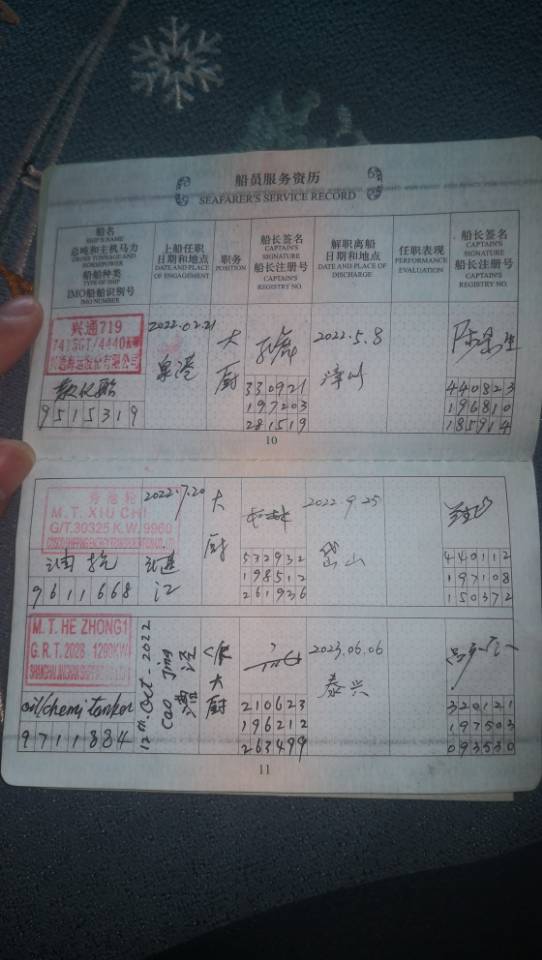 船员服务资历
SEAFARER'S SERVICE RECORD
船名
SHIP'S NAME
总吨和主机马力
GROSS TONNAGE AND
HORSEPOWER
船舶种类
TYPE OF SHIP
IMO船舶识别号
IMO NUMBER
上船任职
日期和地点
DATE AND PLACE
OF ENGAGEMENT
职务
POSITION
船长签名
CAPTAIN'S
SIGNATURE
船长注册号
CAPTAIN'S
REGISTRY NO.
解职离船
日期和地点
DATE AND PLACE OF
DISCHARGE
任职表现
PERFORMANCE
EVALUATION
船长签名
CAPTAIN'S
SIGNATURE
船长注册号
CAPTAIN'S
REGISTRY NO.
兴通719
兴通海运股份有限公司
散化船
9515319
2022.02.21
泉港
大厨
330921
197203
281519
2022.5.8
漳州
440823
196810
185914
10
M.T. XIU CHI
G/T.30325 K.W. 9960
油轮
9611668
2022.7.20
湛江
大厨
572932
198512
261936
2022.9.25
岱山
440112
197108
150372
M.T. HE ZHONG1
G.R.T. 2028
oil/chemi tanker
9711884
12th. Oct. 2022
Cao Jing
漕泾
大厨
210623
196212
263499
2023.06.06
泰兴
320121
197503
093530
11